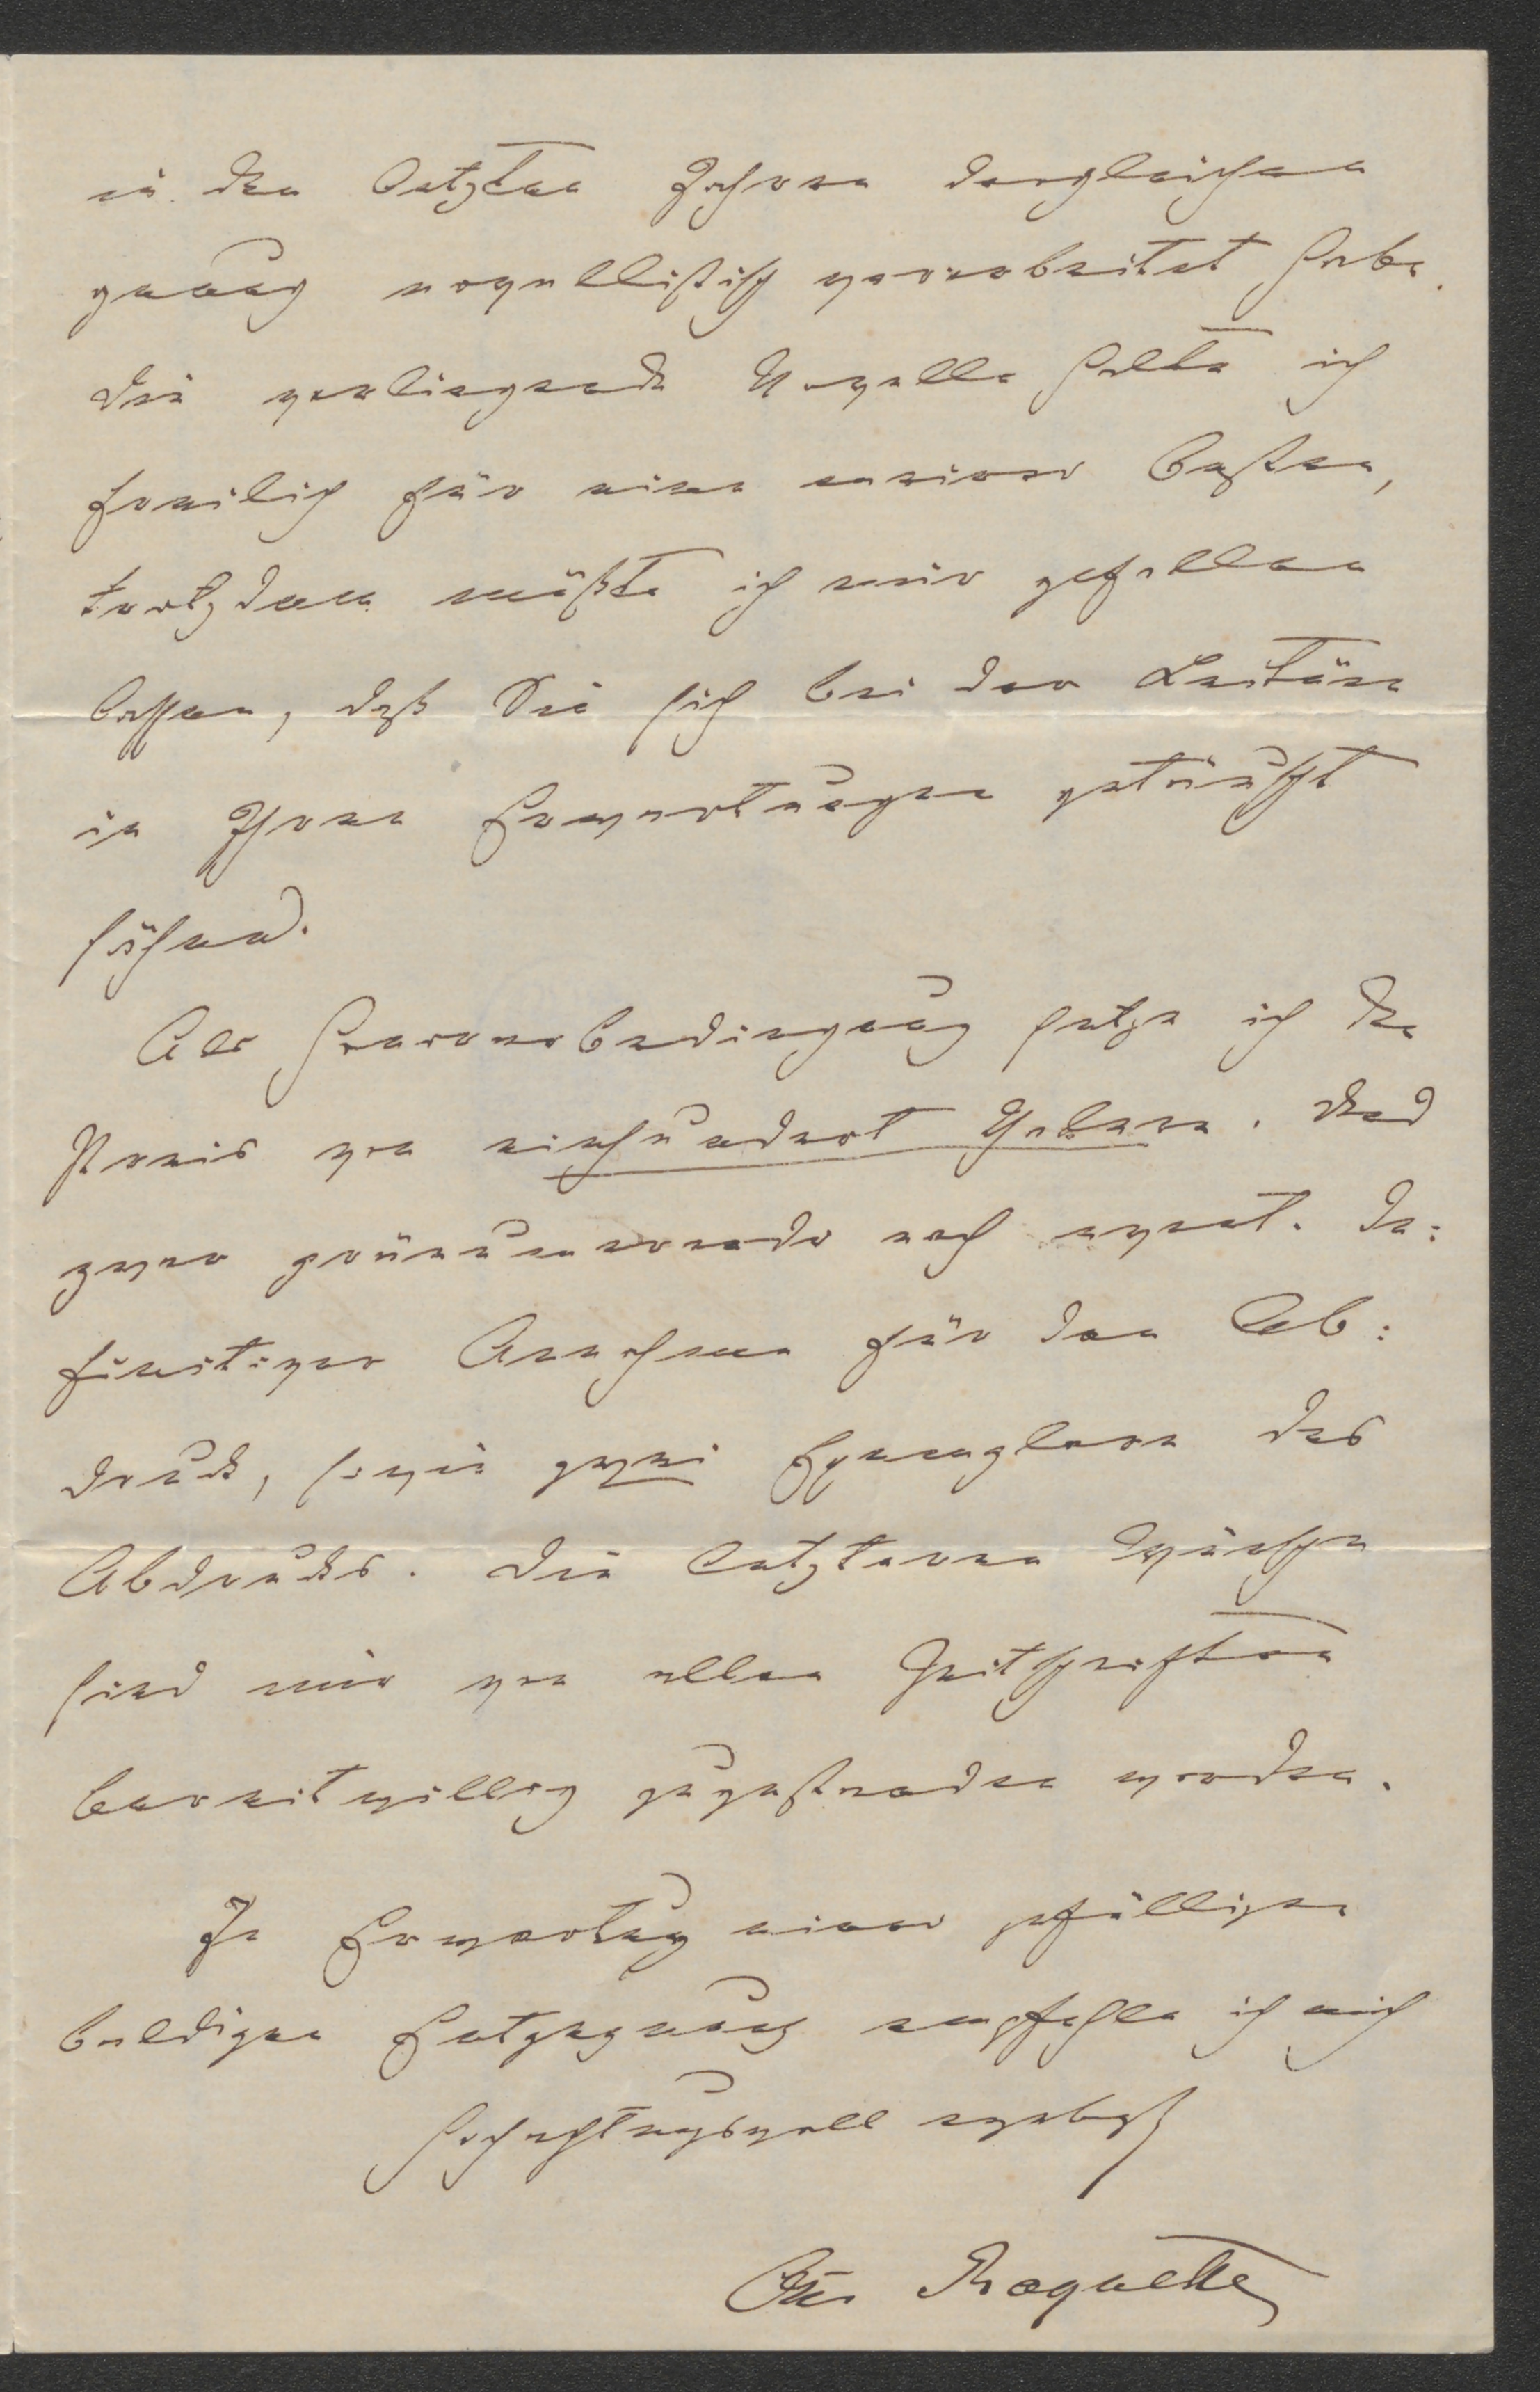 in den letzten Jahren dergleichen
genug novellistisch verarbeitet habe.
Die vorliegende Novelle halte ich
freilich für eine meiner besten,
trotzdem müßte ich mir gefallen
lassen, daß Sie sich bei der Lectüre
in Ihren Erwartungen getäuscht
sähen.
Als Honorarbedingung setze ich den
Preis von einhundert Thalern. Und
zwar pränumerando nach event. De:
finitiver Annahme für den Ab:
druck, sowie zwei Exemplare des
Abdrucks. Die letzteren Wünsche
sind mir von allen Zeitschriften
bereitwillig zugestanden worden.
In Erwartung einer gefälligen
baldigen Entgegnung empfehle ich mich
hochachtungsvoll ergebenst
Otto Roquette